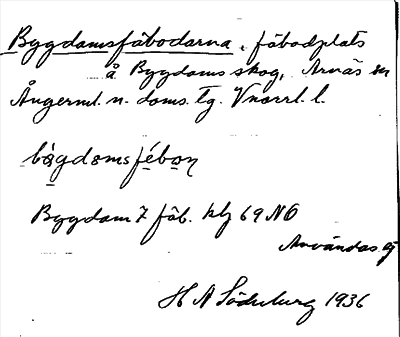 Bygdamsfäbodarna, fäbodplats
å Bygdams skog, Arnäs sn
Ångerml. n. doms. tg. Vnorrl. l.
bỳgdomsfébon
Bygdam 7 fäb. klj 69 NO
Användas ej
H A Söderberg 1936